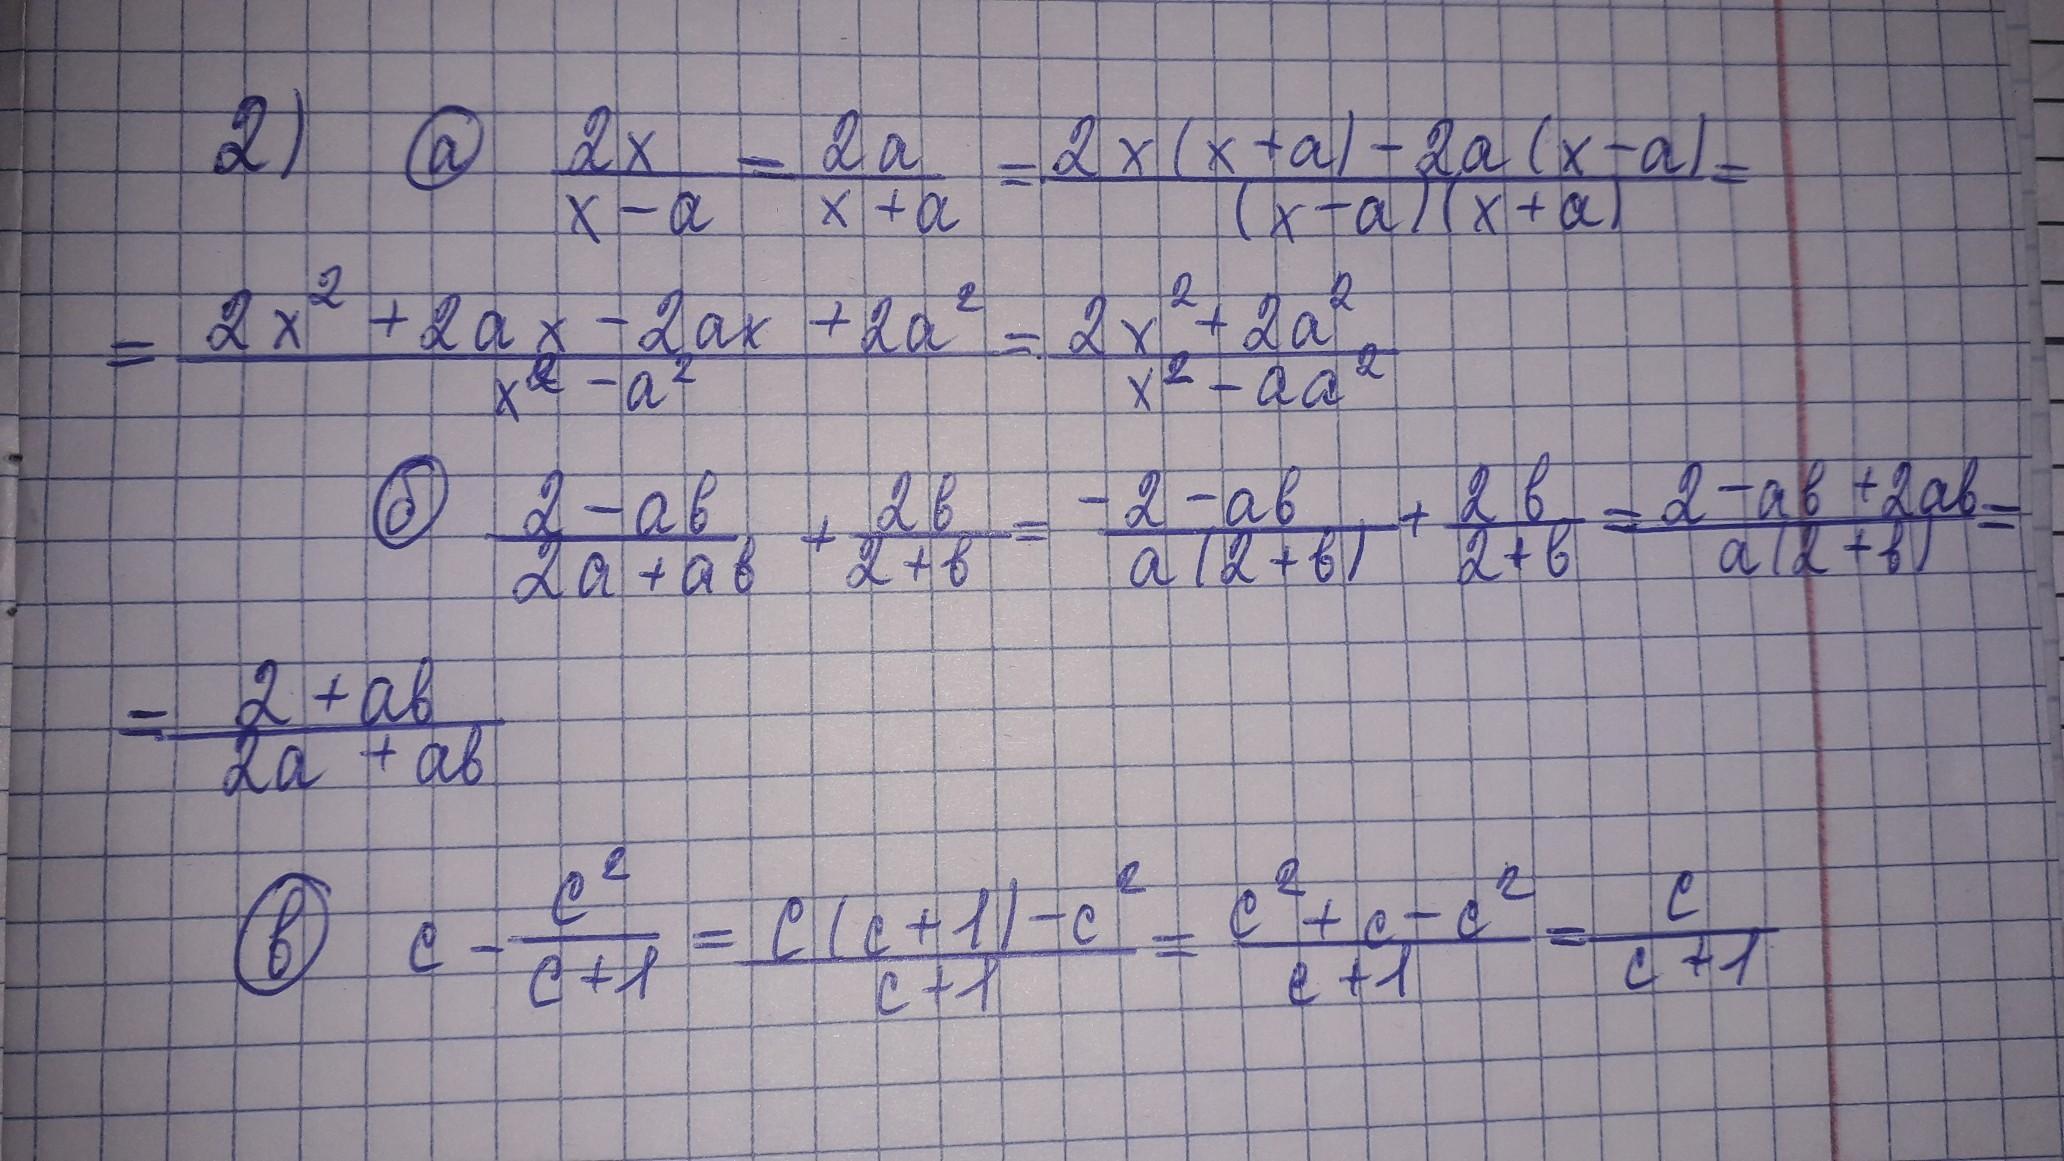 2) а) 2x/(x-a) - 2a/(x+a) = (2x(x+a)-2a(x-a))/((x-a)(x+a)) =
= (2x²+2ax-2ax+2a²)/(x²-a²) = (2x²+2a²)/(x²-aa²)
б) (2-ab)/(2a+ab) + 2b/(2+b) = (-2-ab)/(a(2+b)) + 2b/(2+b) = (2-ab+2ab)/(a(2+b)) =
= (2+ab)/(2a+ab)
в) c - c²/(c+1) = (c(c+1)-c²)/(c+1) = (c²+c-c²)/(c+1) = c/(c+1)